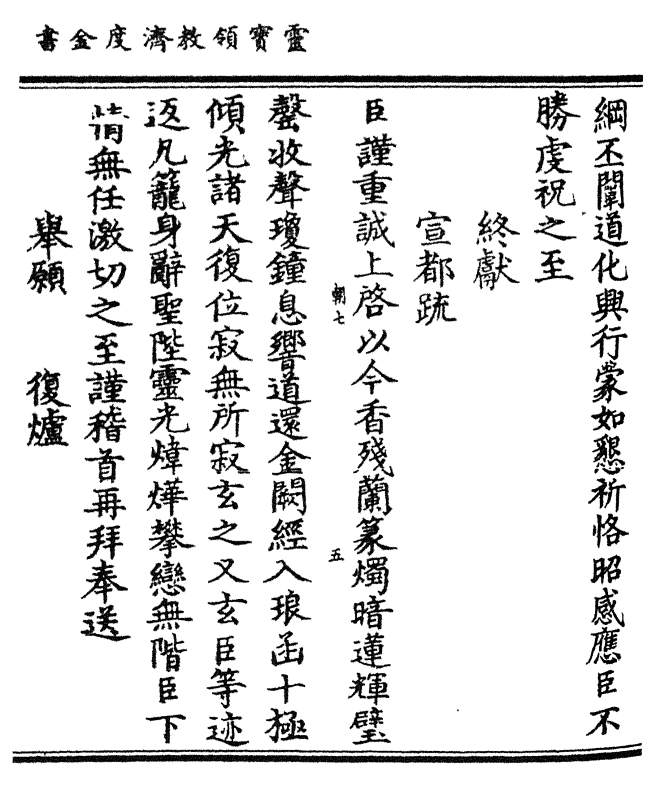 靈寶領教濟度金書
綱丕闡道化興行蒙如懇祈恪昭感應臣不
勝虔祝之至
終獻
宣都疏
臣謹重誠上啓以今香殘蘭篆燭暗蓮輝璧
朝七
五
罄收聲瓊鐘息響道還金闕經入琅函十極
傾光諸天復位寂無所寂玄之又玄臣等迹
返凡籠身辭聖陛靈光煒燁攀戀無階臣下
情無任激切之至謹稽首再拜奉送
舉願 復爐